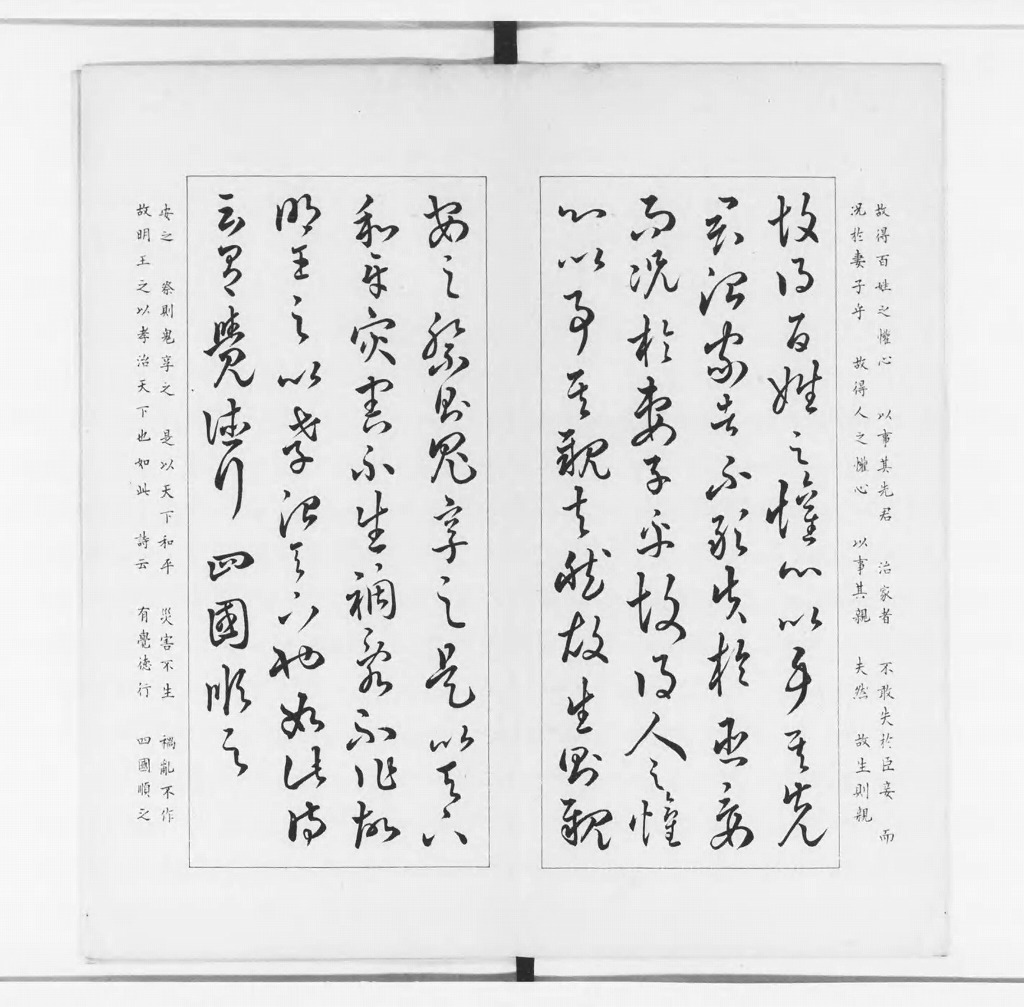 故得百姓之懽心 以事其先君 治家者 不敢失於臣妾 而
况於妻子乎 故得人之懽心 以事其親 夫然 故生則親
故得百姓之懽心以事其先
君治家者不敢失於臣妾
而况於妻子乎故得人之懽
心以事其親夫然故生則親
安之祭則鬼享之是以天下
和平灾害不生禍亂不作故
明王之以孝治天下也如此詩
云有覺德行四國順之
安之 祭則鬼享之 是以天下和平 災害不生 禍亂不作
故明王之以孝治天下也如此 詩云 有覺德行 四國順之